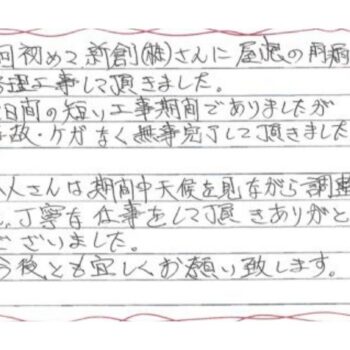 初めて新創(株)さんに屋根の雨漏
工事して頂きました。
日間の短い工事期間でありましたが
故・ケガなく無事完了して頂きました
人さんは期間中天候を見ながら調整
し、丁寧な仕事をして頂きありがと
ございました。
今後とも宜しくお願い致します。